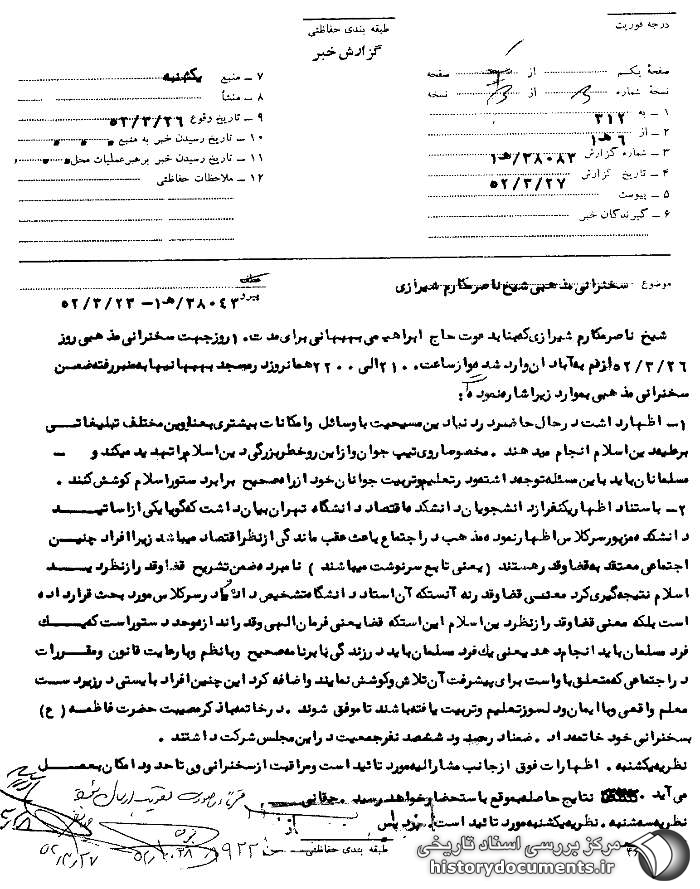 درجه فوریت
طبقه بندی حفاظتی
گزارش خبر
صفحهٔ یکم از صفحه
نسخهٔ شماره از نسخه
۱ – به ۳۱۲
۲ – از ۶ هـ ۱
۳ – شماره گزارش ۳۸۰۸۳/هـ۱
۴ – تاریخ گزارش ۵۲/۳/۲۷
۵ – پیوست
۶ – گیرندگان خبر
۷ – منبع یکشنبه
۸ – منشأ
۹ – تاریخ وقوع ۵۲/۳/۲۶
۱۰ – تاریخ رسیدن خبر به منبع
۱۱ – تاریخ رسیدن خبر برهبر عملیات محل
۱۲ – ملاحظات حفاظتی
موضوع سخنرانی مذهبی شیخ ناصر مکارم شیرازی
پیرو ۳۸۰۴۳/هـ۱ – ۵۲/۳/۲۳
شیخ ناصر مکارم شیرازی که بنا بدعوت حاج ابراهیمی بهبهانی برای مدت ۱۰ روز جهت سخنرانی مذهبی روز
۵۲/۳/۲۶ از قم به آبادان وارد شده و از ساعت ۲۱۰۰ الی ۲۲۰۰ همانروز در مسجد بهبهانیها به منبر رفته ضمن
سخنرانی مذهبی بموارد زیر اشاره نموده :
۱– اظهار داشت در حال حاضر در دنیا دین مسیحیت با وسائل و امکانات بیشتری بعناوین مختلف تبلیغاتی
برعلیه دین اسلام انجام میدهند . مخصوصا روی تیپ جوان و از این رو خطر بزرگی دین اسلام را تهدید میکند و –
مسلمانان باید باین مسئله توجه داشته و در تعلیم و تربیت جوانان خود از راه صحیح برابر دستور اسلام کوشش کنند .
۲– با استناد اظهار یکنفر از دانشجویان دانشکده اقتصاد دانشگاه تهران بیان داشت که گویا یکی از اساتید
دانشکده مزبور سر کلاس اظهار نموده مذهب در اجتماع باعث عقب ماندگی از نظر اقتصاد میباشد زیرا افراد چنین
اجتماعی معتقد به قضا و قدر هستند ( یعنی تابع سرنوشت میباشند ) نامبرده ضمن تشریح قضا و قدر از نظر دید
اسلام نتیجه گیری کرد معنی قضا و قدر نه آنستکه آن استاد دانشگاه تشخیص داده و در سر کلاس مورد بحث قرار داده
است بلکه معنی قضا و قدر از نظر دین اسلام این استکه قضا یعنی فرمان الهی و قدر اندازه و حد دستور است که یک
فرد مسلمان باید انجام دهد یعنی یک فرد مسلمان باید در زندگی با برنامه صحیح و با نظم و با رعایت قانون و مقررات
در اجتماعی که متعلق باو است برای پیشرفت آن تلاش و کوشش نمایند و اضافه کرد این چنین افراد بایستی در زیر دست
معلم واقعی و با ایمان و دلسوز تعلیم و تربیت یافته باشند تا موفق شوند . در خاتمه با ذکر مصیبت حضرت فاطمه ( ع )
بسخنرانی خود خاتمه داد . ضمنا در حدود ششصد نفر جمعیت در این مجلس شرکت داشتند .
نظریه یکشنبه . اظهارات فوق از جانب مشارالیه مورد تائید است و مراقبت از سخنرانی وی تا حدود امکان بعمل
می آید نتایج حاصله بموقع باستحضار خواهد رسید . حقانی
نظریه سه شنبه . نظریه یکشنبه مورد تائید است .
طبقه بندی حفاظتی
۵۲/۳/۲۷
مرکز بررسی اسناد تاریخی
historydocuments.ir